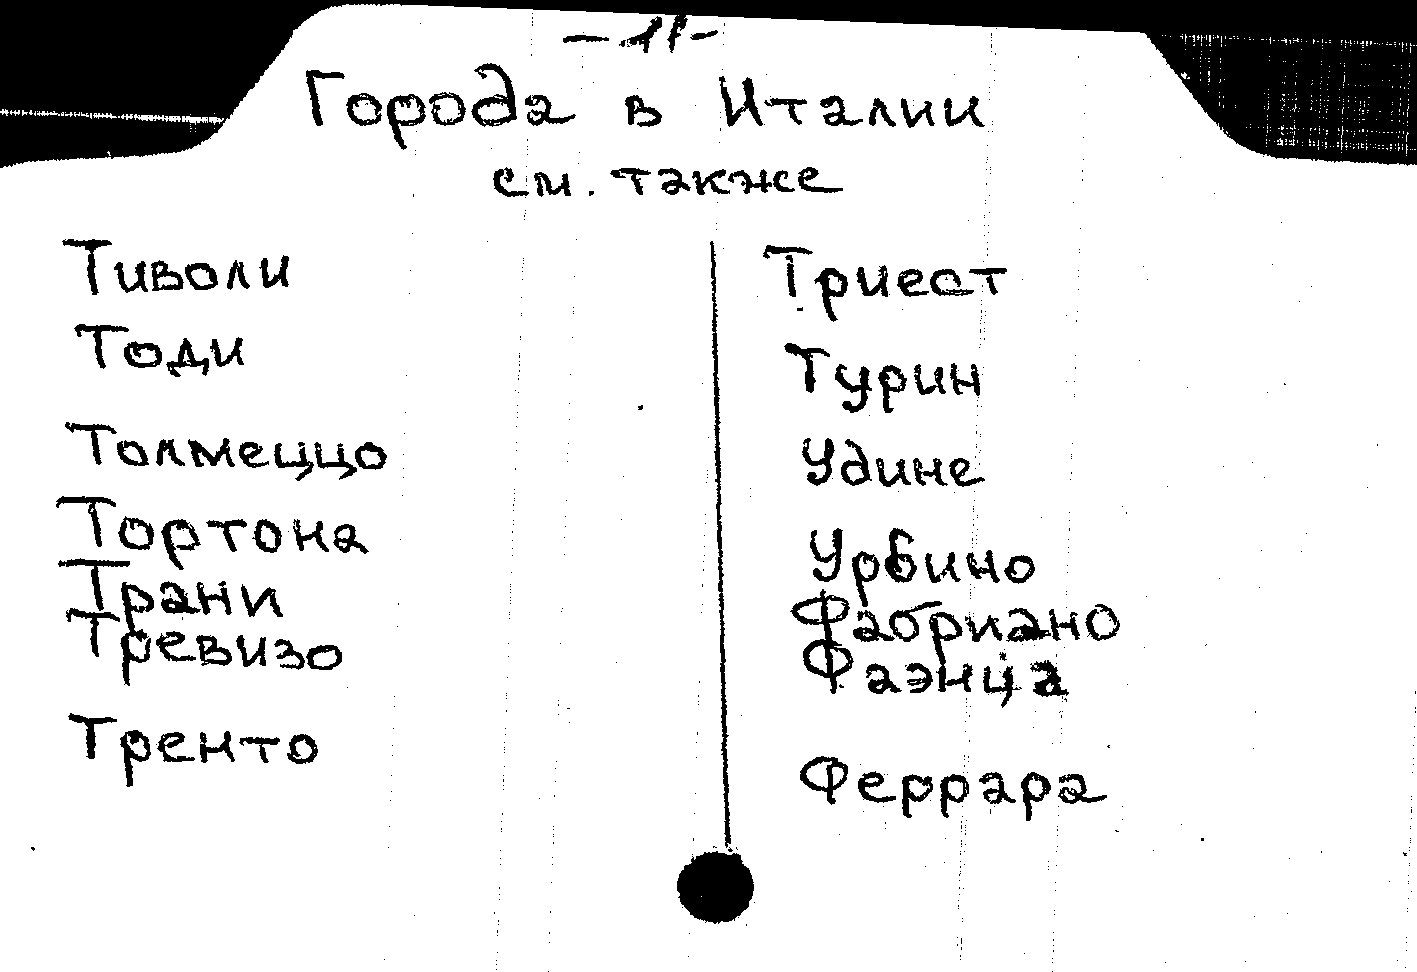 — 11 —
Города в Италии
см. также
Тиволи
Тоди
Толмеццо
Тортона
Трани
Тревизо
Тренто
Триест
Турин
Удине
Урбино
Фабриано
Фаэнца
Феррара